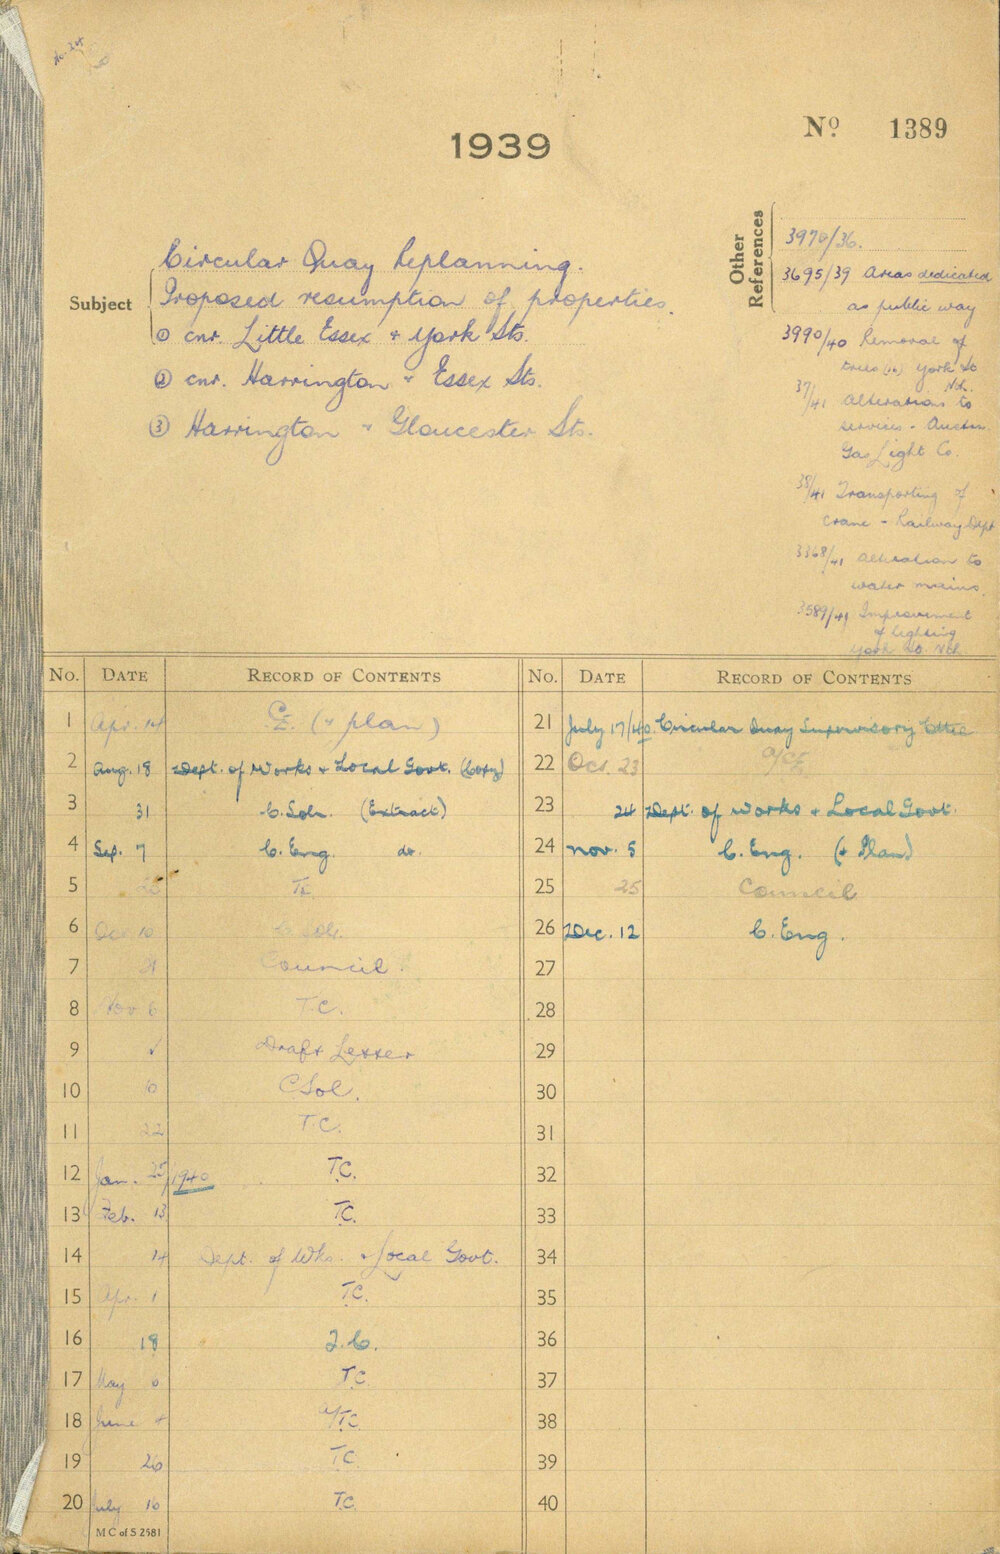 1939
No 1389
Subject
Circular Quay Replanning.
Proposed resumption of properties.
① cnr. Little Essex & York Sts.
② cnr. Harrington & Essex Sts.
③ Harrington & Gloucester Sts.
Other References
3970/36.
3695/39 Areas dedicated
as public way
3990/40 Removal of
trees (16) York St
Nth.
37/41 Alterations to
services - Austn.
Gas Light Co.
38/41 Transporting of
crane - Railway Dept
3368/41 Alteration to
water mains.
3589/41 Improvement
of lighting
York St. Nth.
No. DATE RECORD OF CONTENTS
1 Apr. 14 CE. (& plan)
2 Aug. 18 Dept. of Works & Local Govt. (Copy)
3 31 C. Solr. (Extract)
4 Sep. 7 C. Eng. do.
5
6 Oct 10 C. Solr.
7 Council.
8 Nov 6 T.C.
9 Draft Letter
10 C Sol.
11 22 T.C.
12 Jan. 25/1940 T.C.
13 Feb. 13 T.C.
14 14 Dept. of Wks. & Local Govt.
15 Apr. 1 T.C.
16 18 T.C.
17 May T.C.
18 June 4 T.C.
19 26 T.C.
20 July 16 T.C.
M C of S 2581
No. DATE RECORD OF CONTENTS
21 July 17/40. Circular Quay Supervisory Cttee
22 Oct. 23 A/CE
23 24 Dept. of Works & Local Govt.
24 Nov. 5 C. Eng. (& Plan)
25 25 Council
26 Dec. 12 C. Eng.
27
28
29
30
31
32
33
34
35
36
37
38
39
40